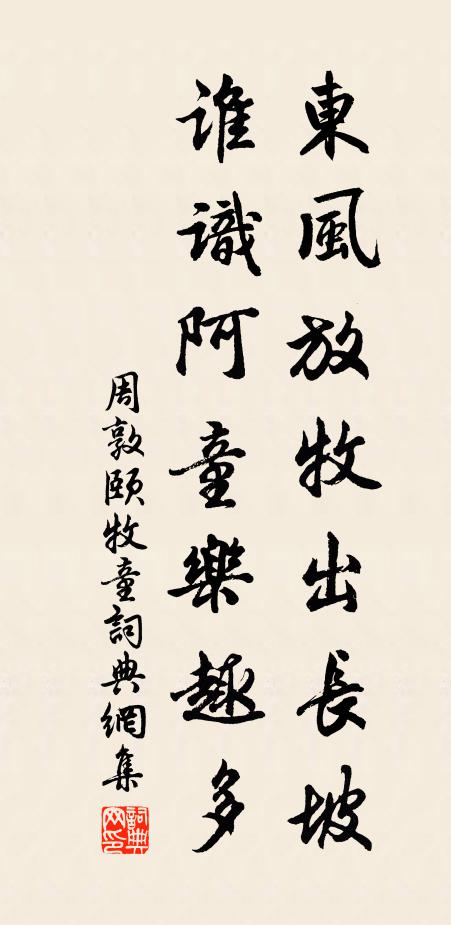 東風放牧出長坡
誰識阿童樂趣多
周敦頤牧童詞典網集
詞典
网印